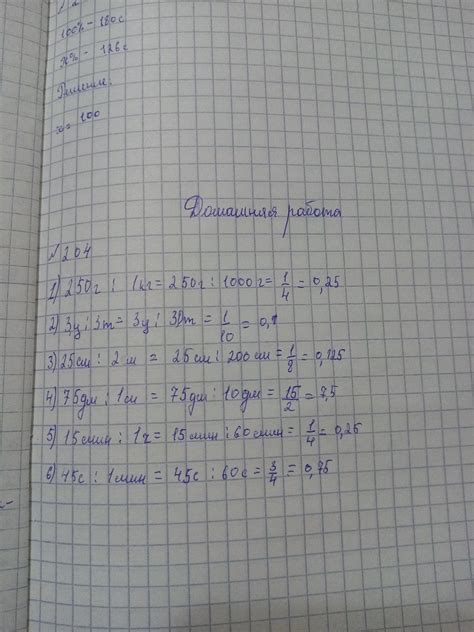 100% - 180с
x% - 126с
Решение:
x = 100
Домашняя работа
№204
1) 250г : 1кг = 250г : 1000г = 1/4 = 0,25
2) 3ц : 3т = 3ц : 30т = 1/10 = 0,1
3) 25см : 2м = 25см : 200см = 1/8 = 0,125
4) 75дм : 1см = 75дм : 10дм = 15/2 = 7,5
5) 15мин : 1ч = 15мин : 60мин = 1/4 = 0,25
6) 45с : 1мин = 45с : 60с = 3/4 = 0,75